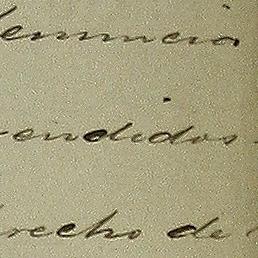 denuncia
endidos
recho de